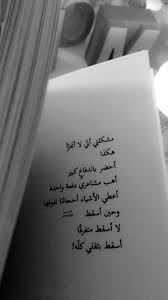 مشكلتي أني لا أتجزأ
هكذا
أحضر باندفاع كبير
أهب مشاعري دفعة واحدة
أعطي الأشياء أحجامًا تفوقها
وحين أسقط
لا أسقط متفرقًا
أسقط بثقلي كلّه!